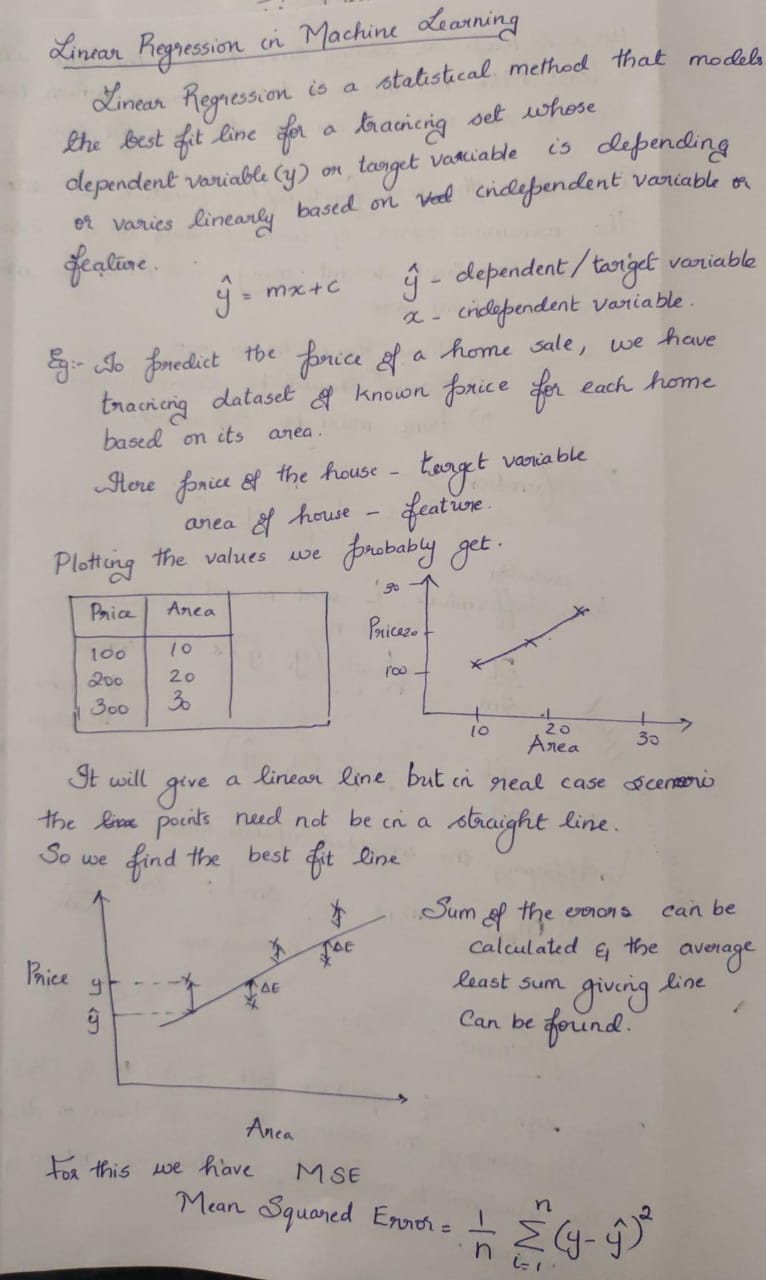 Linear Regression in Machine Learning
Linear Regression is a statistical method that models
the best fit line for a training set whose
dependent variable (y) or target variable is depending
or varies linearly based on independent variable or
feature.
ŷ = mx+c
ŷ - dependent/target variable
x - independent variable.
Eg:- To predict the price of a home sale, we have
training dataset of known price for each home
based on its area.
Here price of the house - target variable
area of house - feature.
Plotting the values we probably get.
Price Area
100 10
200 20
300 30
30
Price 20
100
10 20 30
Area
It will give a linear line but in real case
the points need not be in a straight line.
So we find the best fit line
Price y
ŷ
ΔE
ΔE
Area
Sum of the errors can be
calculated & the average
least sum giving line
Can be found.
For this we have MSE
Mean Squared Error = 1/n Σ i=1 n (y-ŷ)²